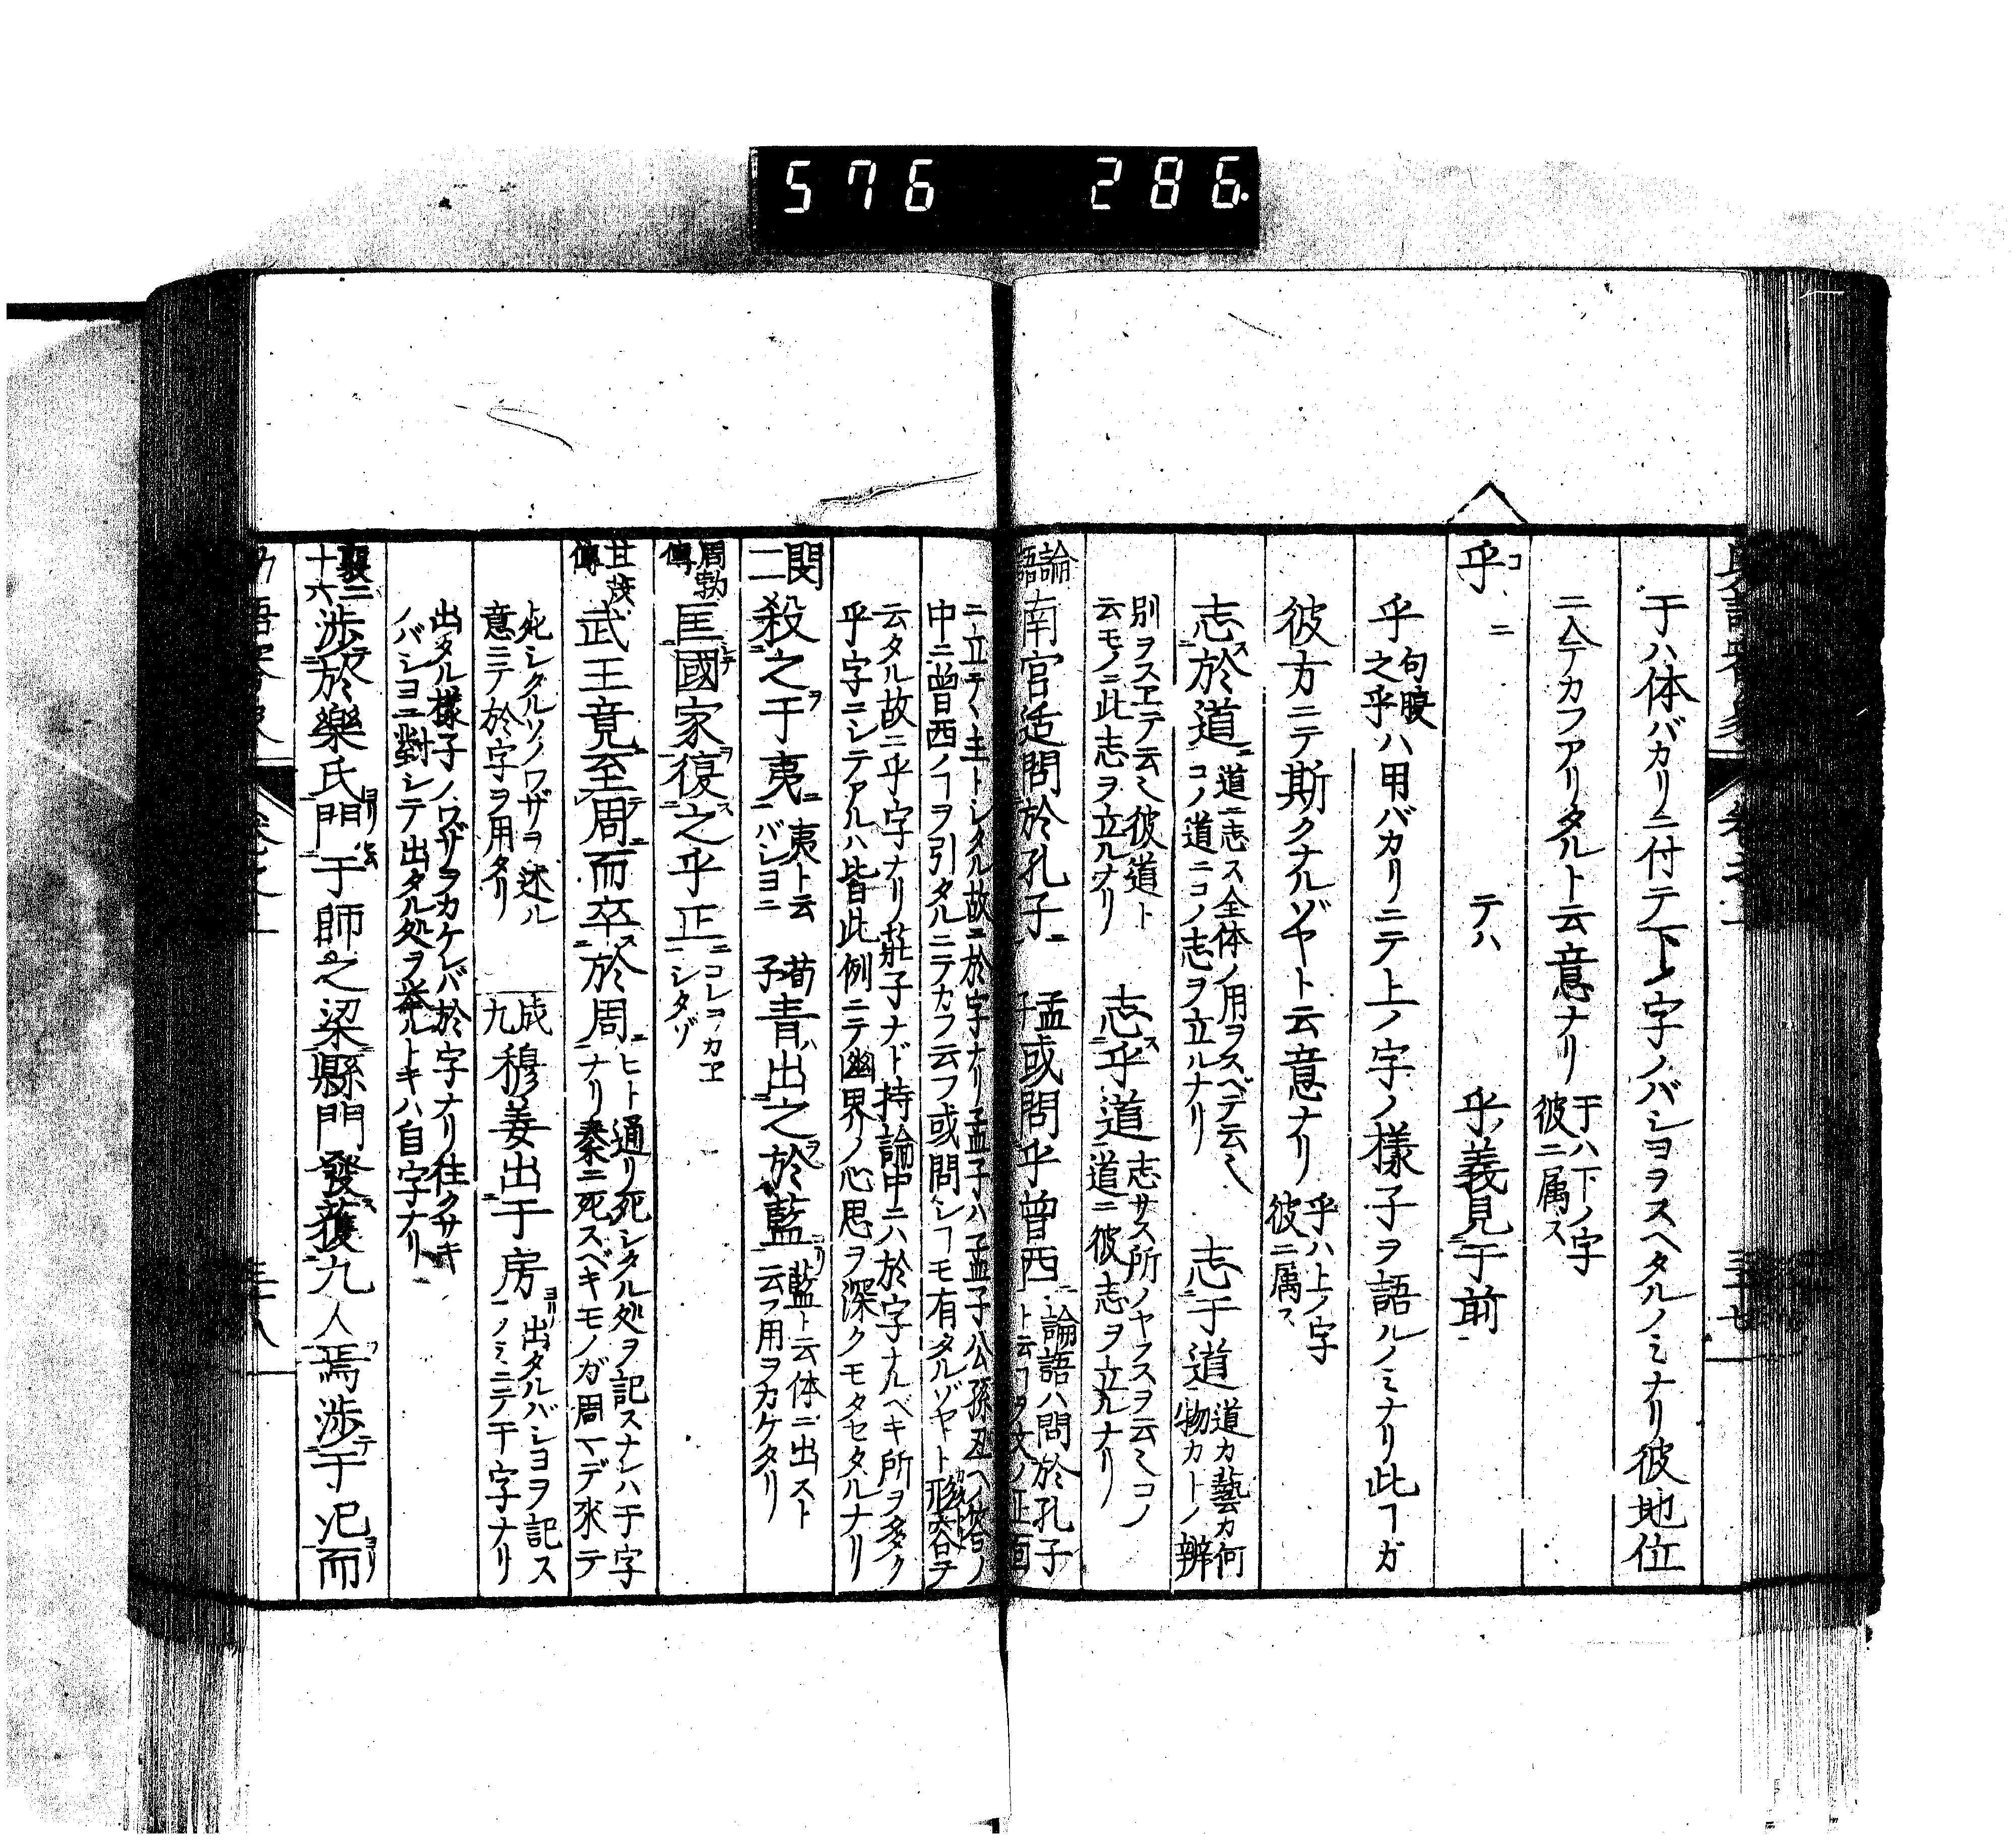 576 286
于ハ体バカリニ付テ下ノ字ノバシヨヲスヘタルノミナリ彼地位
ニ入テカフアリタルト云意ナリ
于ハ下ノ字
彼ニ属ス
乎 コ ニ テハ 乎義見于前
乎
句腹
之乎
ハ用バカリニテ上ノ字ノ様子ヲ語ルノミナリ此ヿガ
彼方ニテ斯クナルゾヤト云意ナリ
乎ハ上ノ字
彼ニ属ス
志於道
道ニ志ス全体ノ用ヲスベテ云ミ
コノ道ニコノ志ヲ立ルナリ
志于道
道カ藝カ何
物カトノ辨
別ヲスヱテ云ミ彼道ト
云モノニ此志ヲ立ルナリ
志乎道
志サス所ノヤフスヲ云ミコノ
道ニ彼志ヲ立ルナリ
論語
南宮适問於孔子
孟子
或問乎曽西
論語ハ問於孔子
ト云ヿヲ文ノ正面
ニ立テヽ主トシタル故ニ於字ナリ孟子ハ孟子公孫丑ヘノ答ノ
中ニ曽西ノヿヲ引タルニテカフ云フ或問シヿモ有タルゾヤト形容ヲ
云タル故ニ乎字ナリ莊子ナド持論中ニハ於字ナルベキ所ヲ多ク
乎字ニシテアルハ皆此例ニテ幽界ノ心思ヲ深クモタセタルナリ
閔二
殺之于夷
夷ト云
バシヨニ
荀子
青出之於藍
藍ト云体ニ出スト
云フ用ヲカケタリ
周勃傳
匡國家復之乎正
コレヲカヱ
シタゾ
甘茂傳
武王竟至周而卒於周
ヒト通リ死シタル処ヲ記スナレハ于字
ナリ秦ニ死スベキモノガ周マデ來テ
死シタルソノワザヲ述ル
意ニテ於字ヲ用タリ
成九
穆姜出于房
出タルバシヨヲ記ス
ノミニテ于字ナリ
出タル様子ノワザヲカケレバ於字ナリ往クサキ
ノバシヨニ對シテ出タル処ヲ発ルトキハ自字ナリ
襄二十六
涉於樂氏門于師之梁縣門發獲九人焉涉于氾而